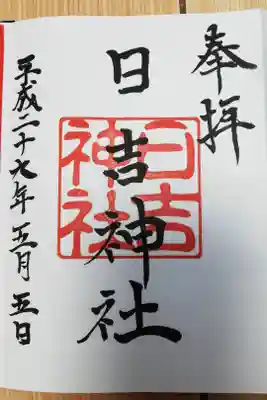 奉拝
日吉神社
日吉神社
平成二十七年五月五日